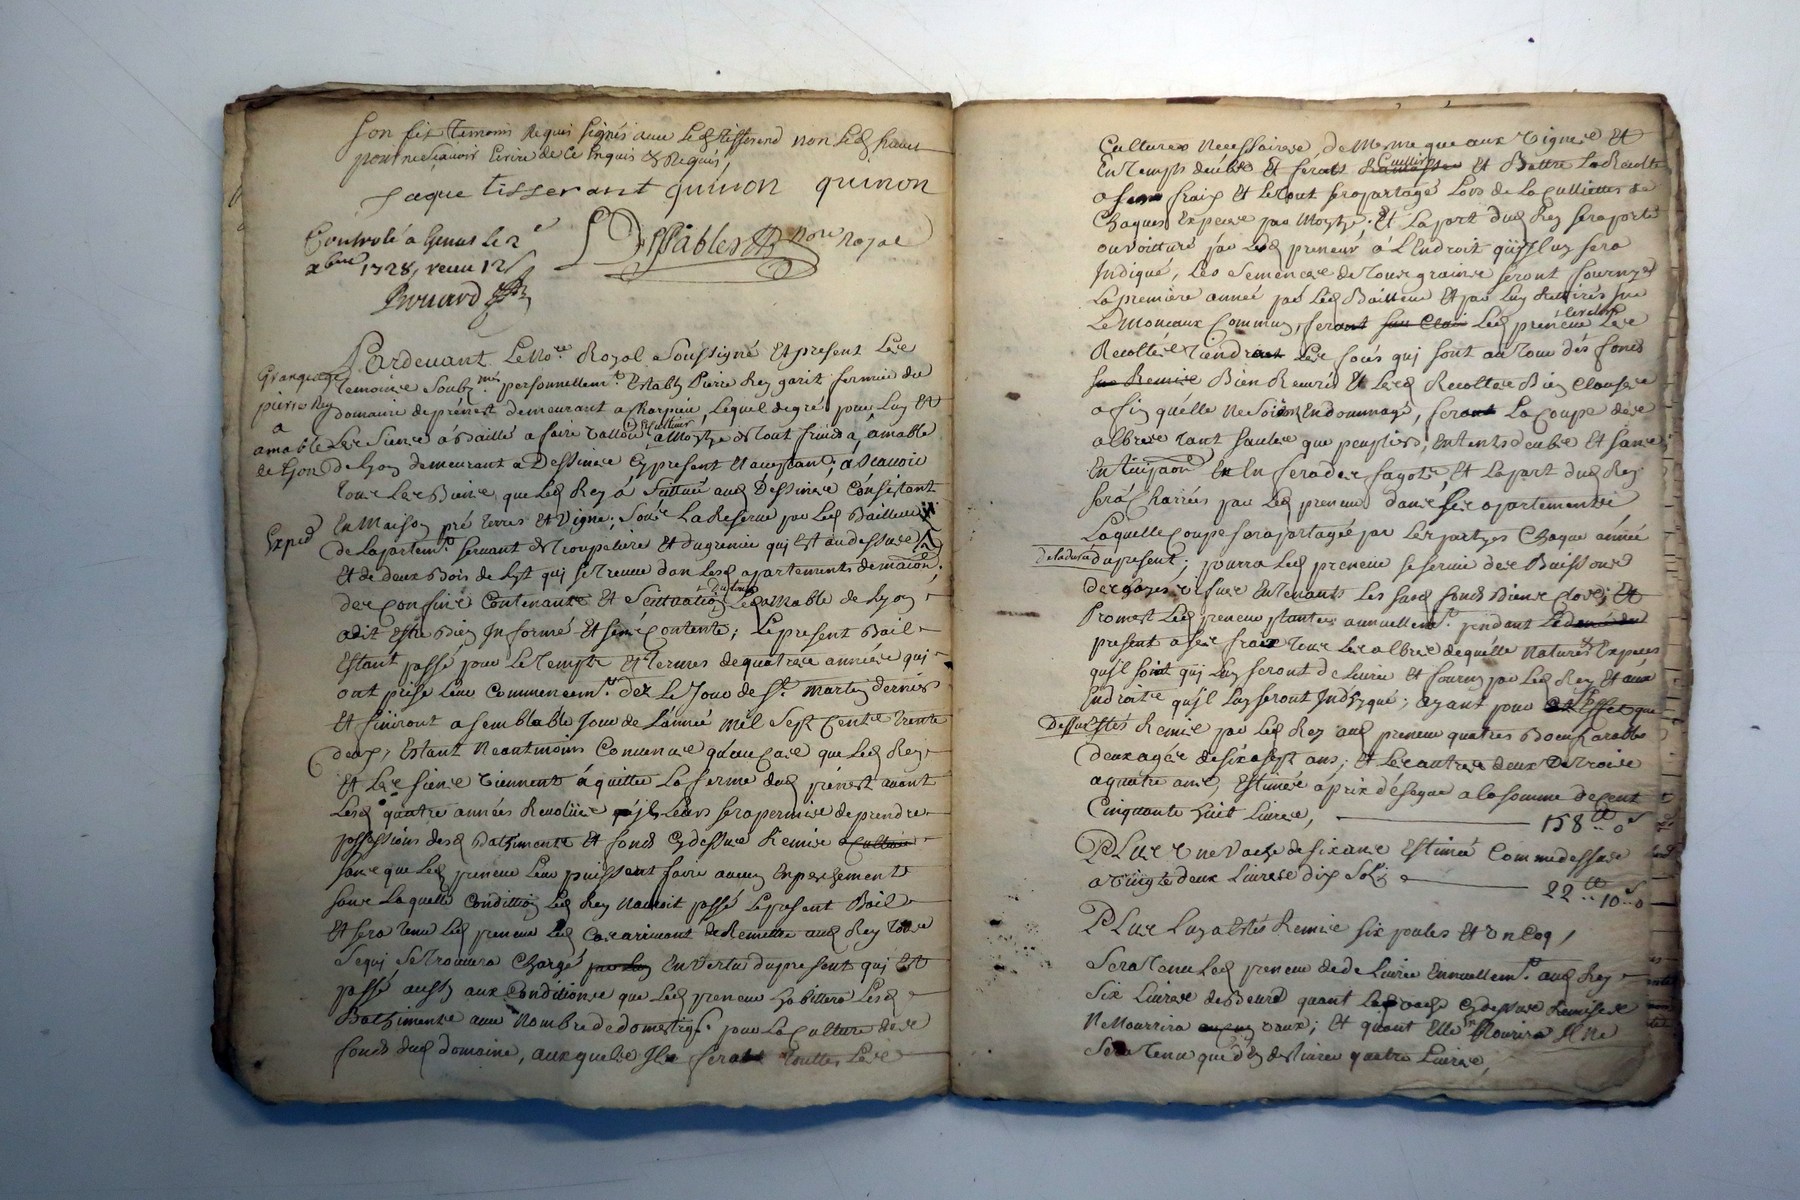 son fix temoins Requis signés avec Led tisserend non Led
pour ne scavoir Ecrire de ce Enquis & Requis,
jaque tisserant quinon quinon
Controlé a Genas Le 2e
xbre 1728, receu 12 s
Despables Nore Royal
Brouard
Pardevant Le Nore Royal Soussigné Et present Les
Grangeage
temoins Soubz més personnellemt Estably Pierre Rey garit fermier du
pierre Rey
domaine de prenest demeurant a Charpieu, Lequel de gré pour Luy Et
a
amable
Les Siens a Baillé a faire valloir & Cultiver a Moytye de tout fruicts a amable
de Lyon
de Lyon demeurant a Dessines Cy present Et acceptant, a Scavoir
tous Les Biens que Led Rey a Scittué aud Dessines Consistant
Exped
En Maison pré terres Et Vigne, Sous La Reserve par Led Bailleur
de Lapartemt servant de Et du grenier qui Est au dessus
Et de deux Bois de Lyt qui se treuve dan Lesd apartements de maison,
des Confins Contenance Et Scituation du tout Led amable de Lyon
a dit Estre Bien Informé Et s'en Contente; Le present Bail
Estant passé pour Le temps Et termes de quatre années qui
ont prise Leur Commencemt dez Le Jour de St Martin dernier
Et finiront a semblable Jour de L'année mil Sept Cents trente
deux, Estant Neantmoins Convenu qu'au Cas que Led Rey
Et Les siens viennent a quitter La ferme dud prenest avant
Lesd quatre années Revolües Leurs sera permis de prendre
possessions desd Bathiments Et fonds Cy dessus Remis
sans que Led preneur Leur puissent faire aucun Enpeschement
sans Laquelle Condition Led Rey N'auroit passé Le present Bail
Et sera tenu Led preneur Led Cas arrivant de Remettre aud Rey tous
Se qui se trouvera Chargé par Luy En vertu du present qui Est
passé aussy aux Conditions que Led preneur habittera Lesd
Bathiments avec Nombre de domestiqs pour La Culture des
fonds dud domaine, auxquels Il fera touttes Les
Cultures Necessaires, de Mesme que aux Vignes Et
En temps deubs Et fera Cuillir Et Battre La Recolte
a frais Et Le tout sera partagé Lors de La Culliette de
Chaques Especes par Moytye; Et La part dud Rey sera porté
ou voitturé par Led preneur a L'Endroit qu'il Luy sera
Indiqué, Les Semences de tous grains seront fournyes
La premiere année par Led Bailleur Et par Luy Retirés sur
Le Monceaux Commun, Led preneur Les
Recoltes tiendra Les fossés qui sont au tour dés fonds
Bien Recurés Et Lesd Recoltes Bien Clauses
a fin qu'elle Ne soient Endommagé, fera La Coupe des
albres tant saules que peupliers, En temps deubs Et saisons
En En fera des fagots, Et La part dud Rey
sera Charriés par Led preneur dans ses apartements
Laquelle Coupe sera partagée par Les partyes Chaque année
de la durée du present; pourra Led preneur se servir des Buissons
des hayes sur Entenants Les susd fonds Biens Clos; Et
Promet Led preneur planter annuellemt pendant Led
present a ses frais tous Les albres de quelle Natures & Especes
qu'il soit qui Luy seront de Livré Et fourny par Led Rey Et aux
Endroits qu'il Luy seront Indyqué; ayant pour Effet que
Dessus Estés Remis par Led Rey aud preneur quatres Boeufs arables
deux agés de six a sept ans; Et Les autres deux de trois
a quatre ans, Estimés a prix d'éseque a La somme de Cent
Cinquante huit Livres, 158 lt .. 0 s
Plus Une Vache de six ans Estimée Comme dessus
a Vingte deux Livres dix Sols 22 lt .. 10 s .. 0
Plus Luy a Estés Remis six poules Et Un Coq,
Sera tenu Led preneur de de Livrer Ennuellemt aud Rey
Six Livres de Beurd quant Lad vache Cy dessus Remise
Ne Nourrira vaux; Et quant Elle En Nourira Il Ne
Sera tenu que d'En de Livrer quatre Livres,